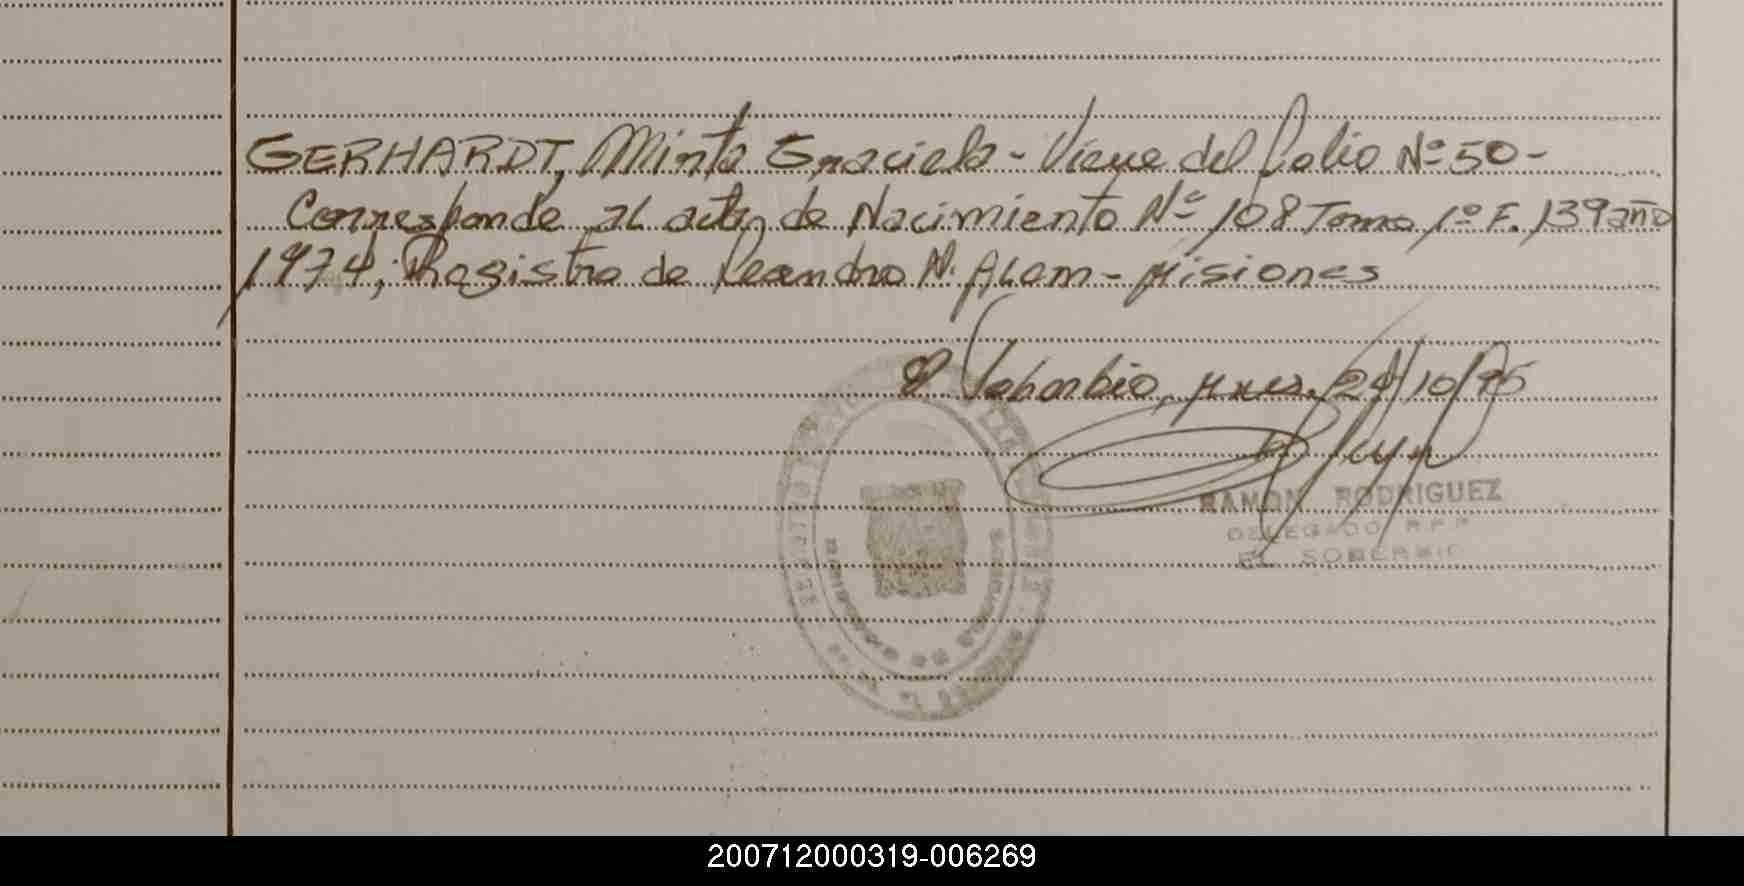 GERHARDT, Minta Graciela - Viene del folio Nº 50 -
Corresponde al acta de Nacimiento Nº 108 Tomo 1º F. 139 año
1974, Registro de Leandro N. Alem - Misiones
El Soberbio, Mnes. 24/10/95
RAMON RODRIGUEZ
DELEGADO R.P.P
EL SOBERBIO
200712000319-006269